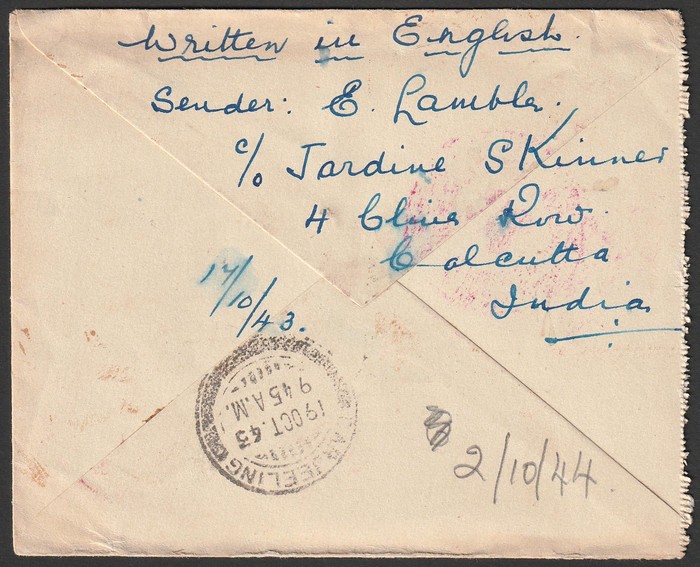 Written in English.
Sender: E. Lambla.
c/o Jardine Skinner
4 Clive Row.
Calcutta
India
17/10/43.
DARJEELING
9 45 A.M.
19 OCT. 43
2/10/44